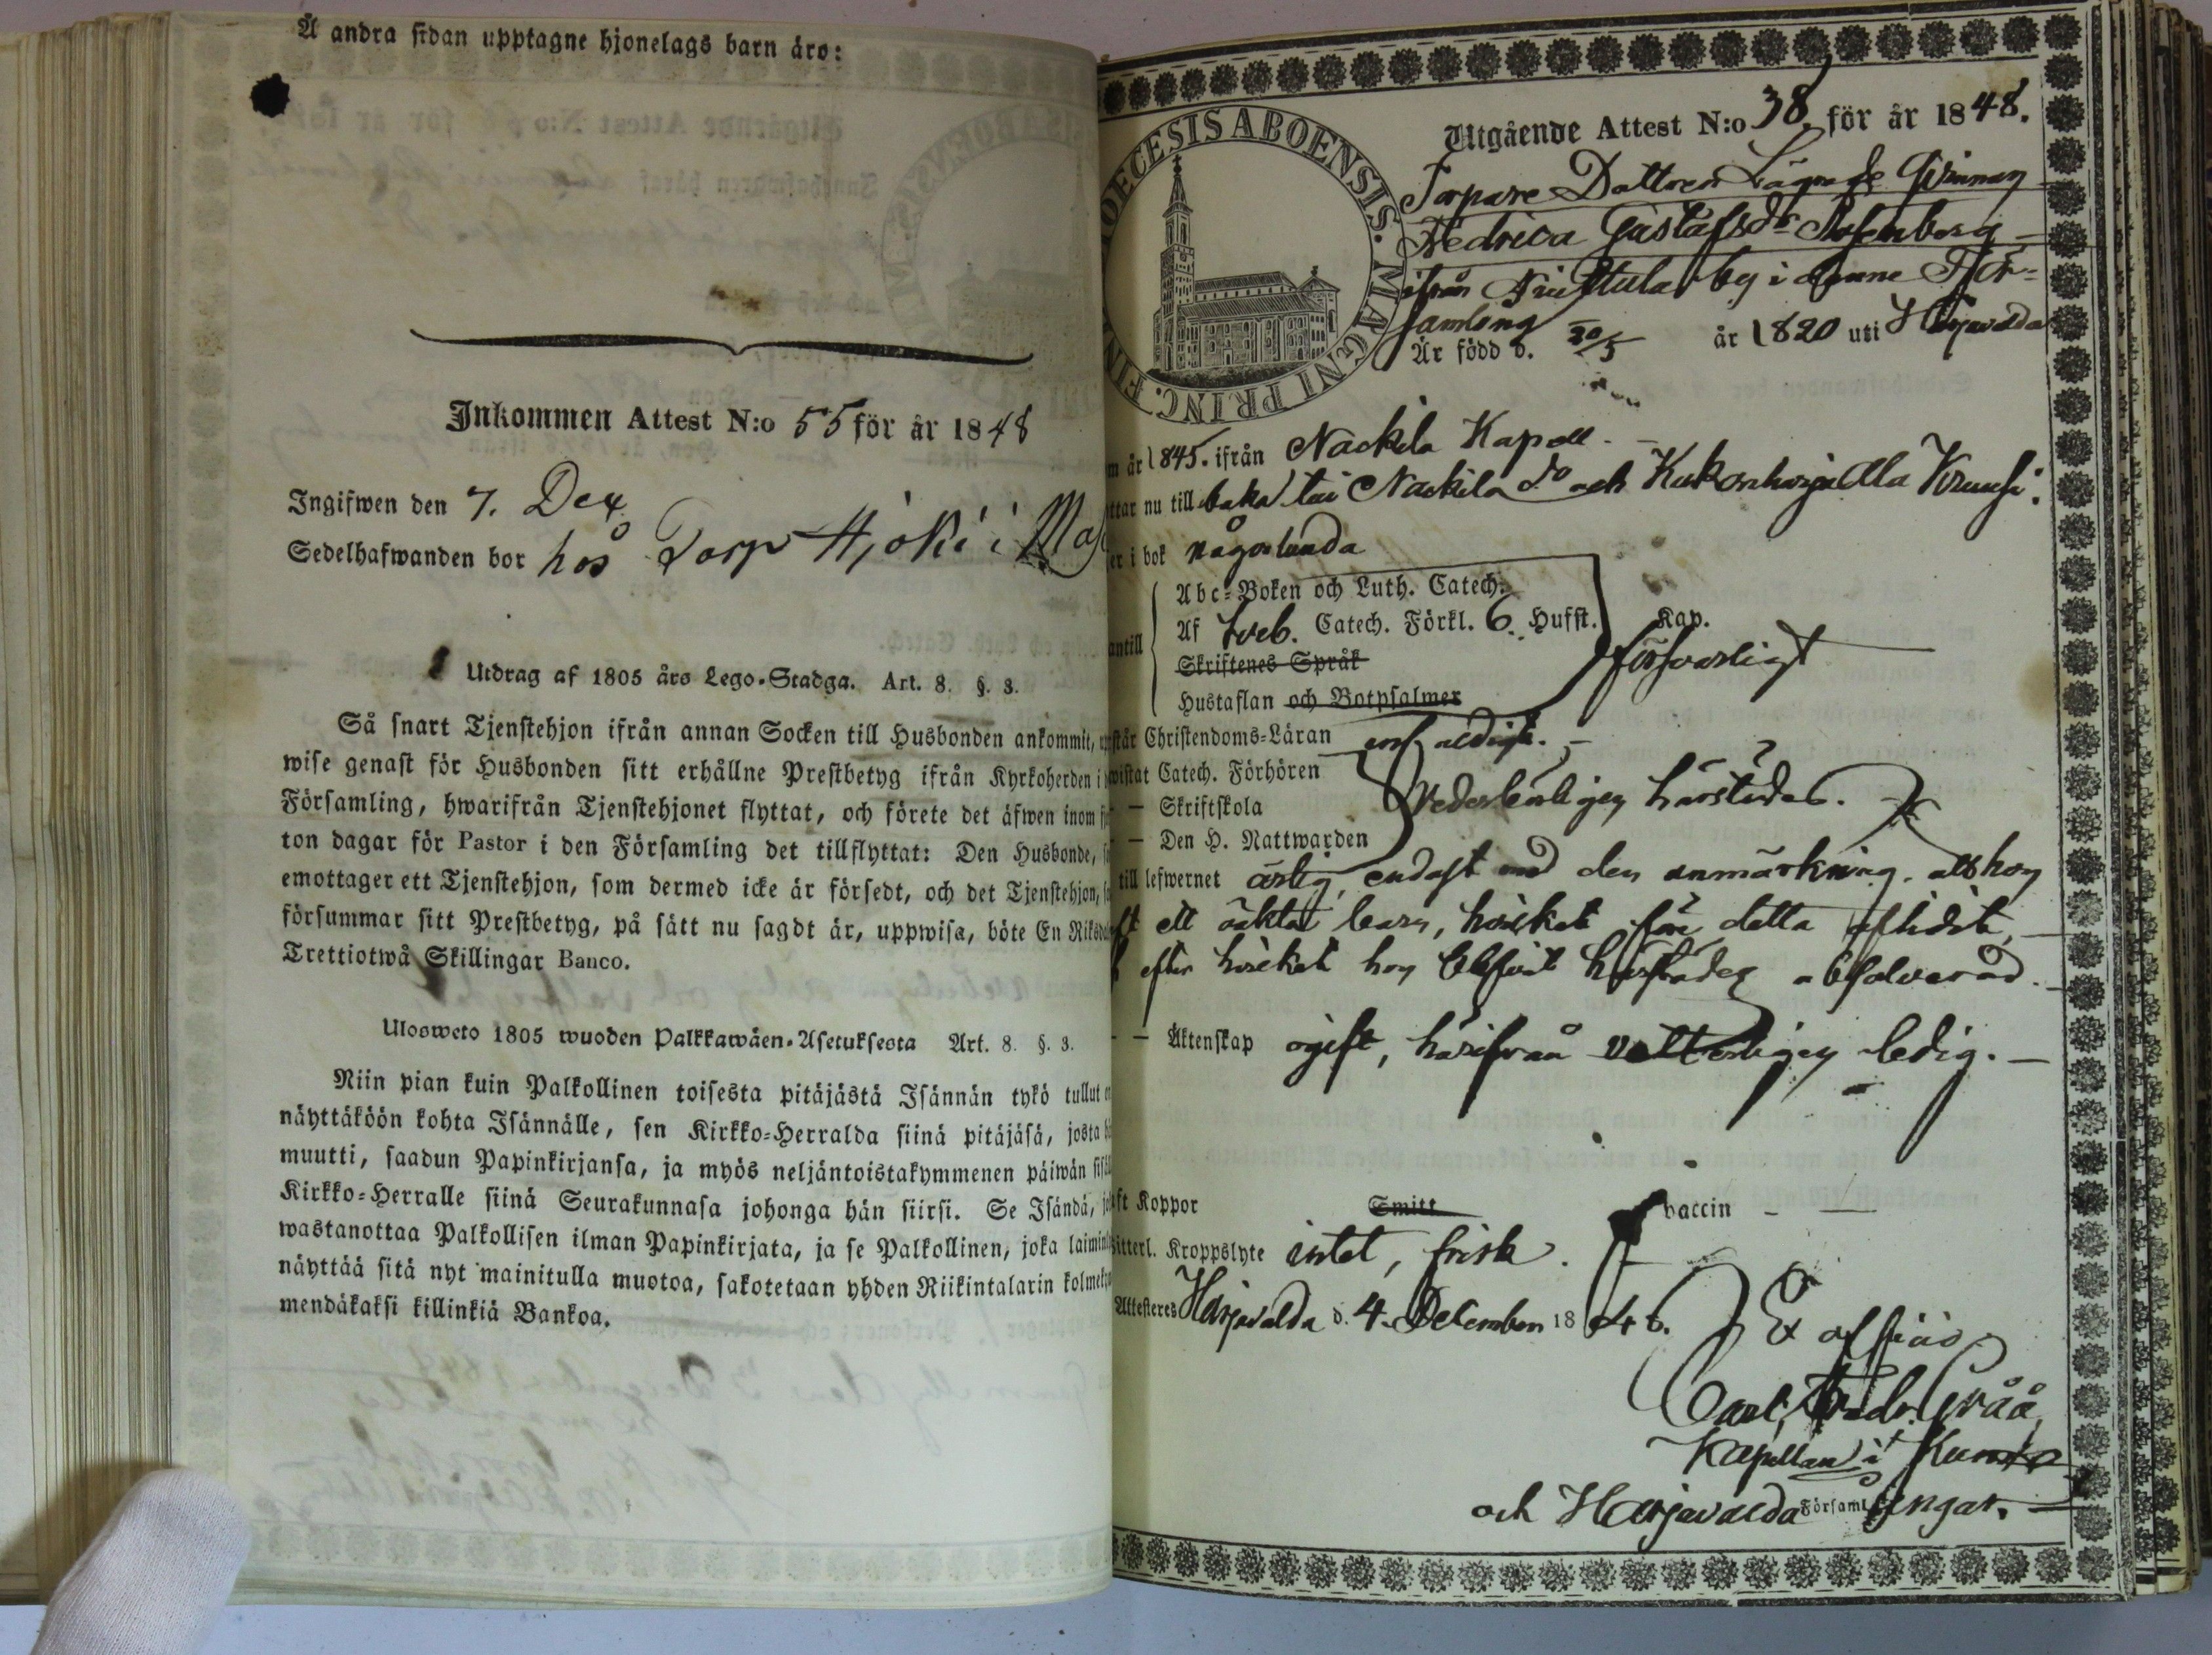 Å andra sidan upptagne hjonelags barn äro:
Inkommen Attest N:o 55 för år 1848
Ingifwen den 7. Dec
Sedelhafwanden bor hos Torp Hjoki i
Utdrag af 1805 års Lego-Stadga. Art. 8. §. 3.
Så snart Tjenstehjon ifrån annan Socken till Husbonden ankommit,
wise genast för Husbonden sitt erhållne Prestbetyg ifrån Kyrkoherden i
Församling, hwarifrån Tjenstehjonet flyttat, och förete det äfwen inom
ton dagar för Pastor i den Församling det tillflyttat: Den Husbonde,
emottager ett Tjenstehjon, som dermed icke är försedt, och det Tjenstehjon,
försummar sitt Prestbetyg, på sätt nu sagdt är, uppwisa, böte En
Trettiotwå Skillingar Banco.
Ulosweto 1805 wuoden Palkkawäen-Asetuksesta Art. 8. §. 3.
Niin pian kuin Palkollinen toisesta pitäjästä Isännän tykö tullut
näyttäköön kohta Isännälle, sen Kirkko-Herralda siinä pitäjäsä, josta
muutti, saadun Papinkirjansa, ja myös neljäntoistakymmenen päiwän
Kirkko-Herralle siinä Seurakunnasa johonga hän siirsi. Se Isändä,
wastanottaa Palkollisen ilman Papinkirjata, ja se Palkollinen, joka
näyttää sitä nyt mainitulla muotoa, sakotetaan yhden Riikintalarin
mendäkaksi killinkiä Bankoa.
DIOECESIS ABOENSIS. MAGNI PRINC. FIN
Utgående Attest N:o 38. för år 1848.
Torpare Dottren Lägrade Qvinnan
Fredrica Gustafsdr Rosenberg
ifrån by i denne För-
samling
Är född d. 20/5 år 1820 uti Harjavalda
år 1845. ifrån Nackila Kapell.
nu tillbaka till Nackila do och
i bok någorlunda
Abc-Boken och Luth. Catech.
Af Sveb. Catech. Förkl. 6. Hufst. Kap.
Skriftenes Språk försvarligt
Hustaflan och Botpsalmer
Christendoms-Läran enfaldigt.
Catech. Förhören
— Skriftskola vederbörligen härstädes.
— Den H. Nattwarden
till lefwernet ärlig, endast med den anmärkning. att hon
ett oäkta barn, hvilket före detta aflidit,
efter hvilket hon blifvit härstädes absolverad.
— Äktenskap ogift, härifrån vetterligen ledig. —
Koppor Smitt vaccin —
Kroppslyte intet, frisk.
Attesteres Harjavalda d. 4. December 1848.
Ex officio
Carl Fredr. Gråå,
Kapellan i Kumo
och Harjavalda Församlingar.